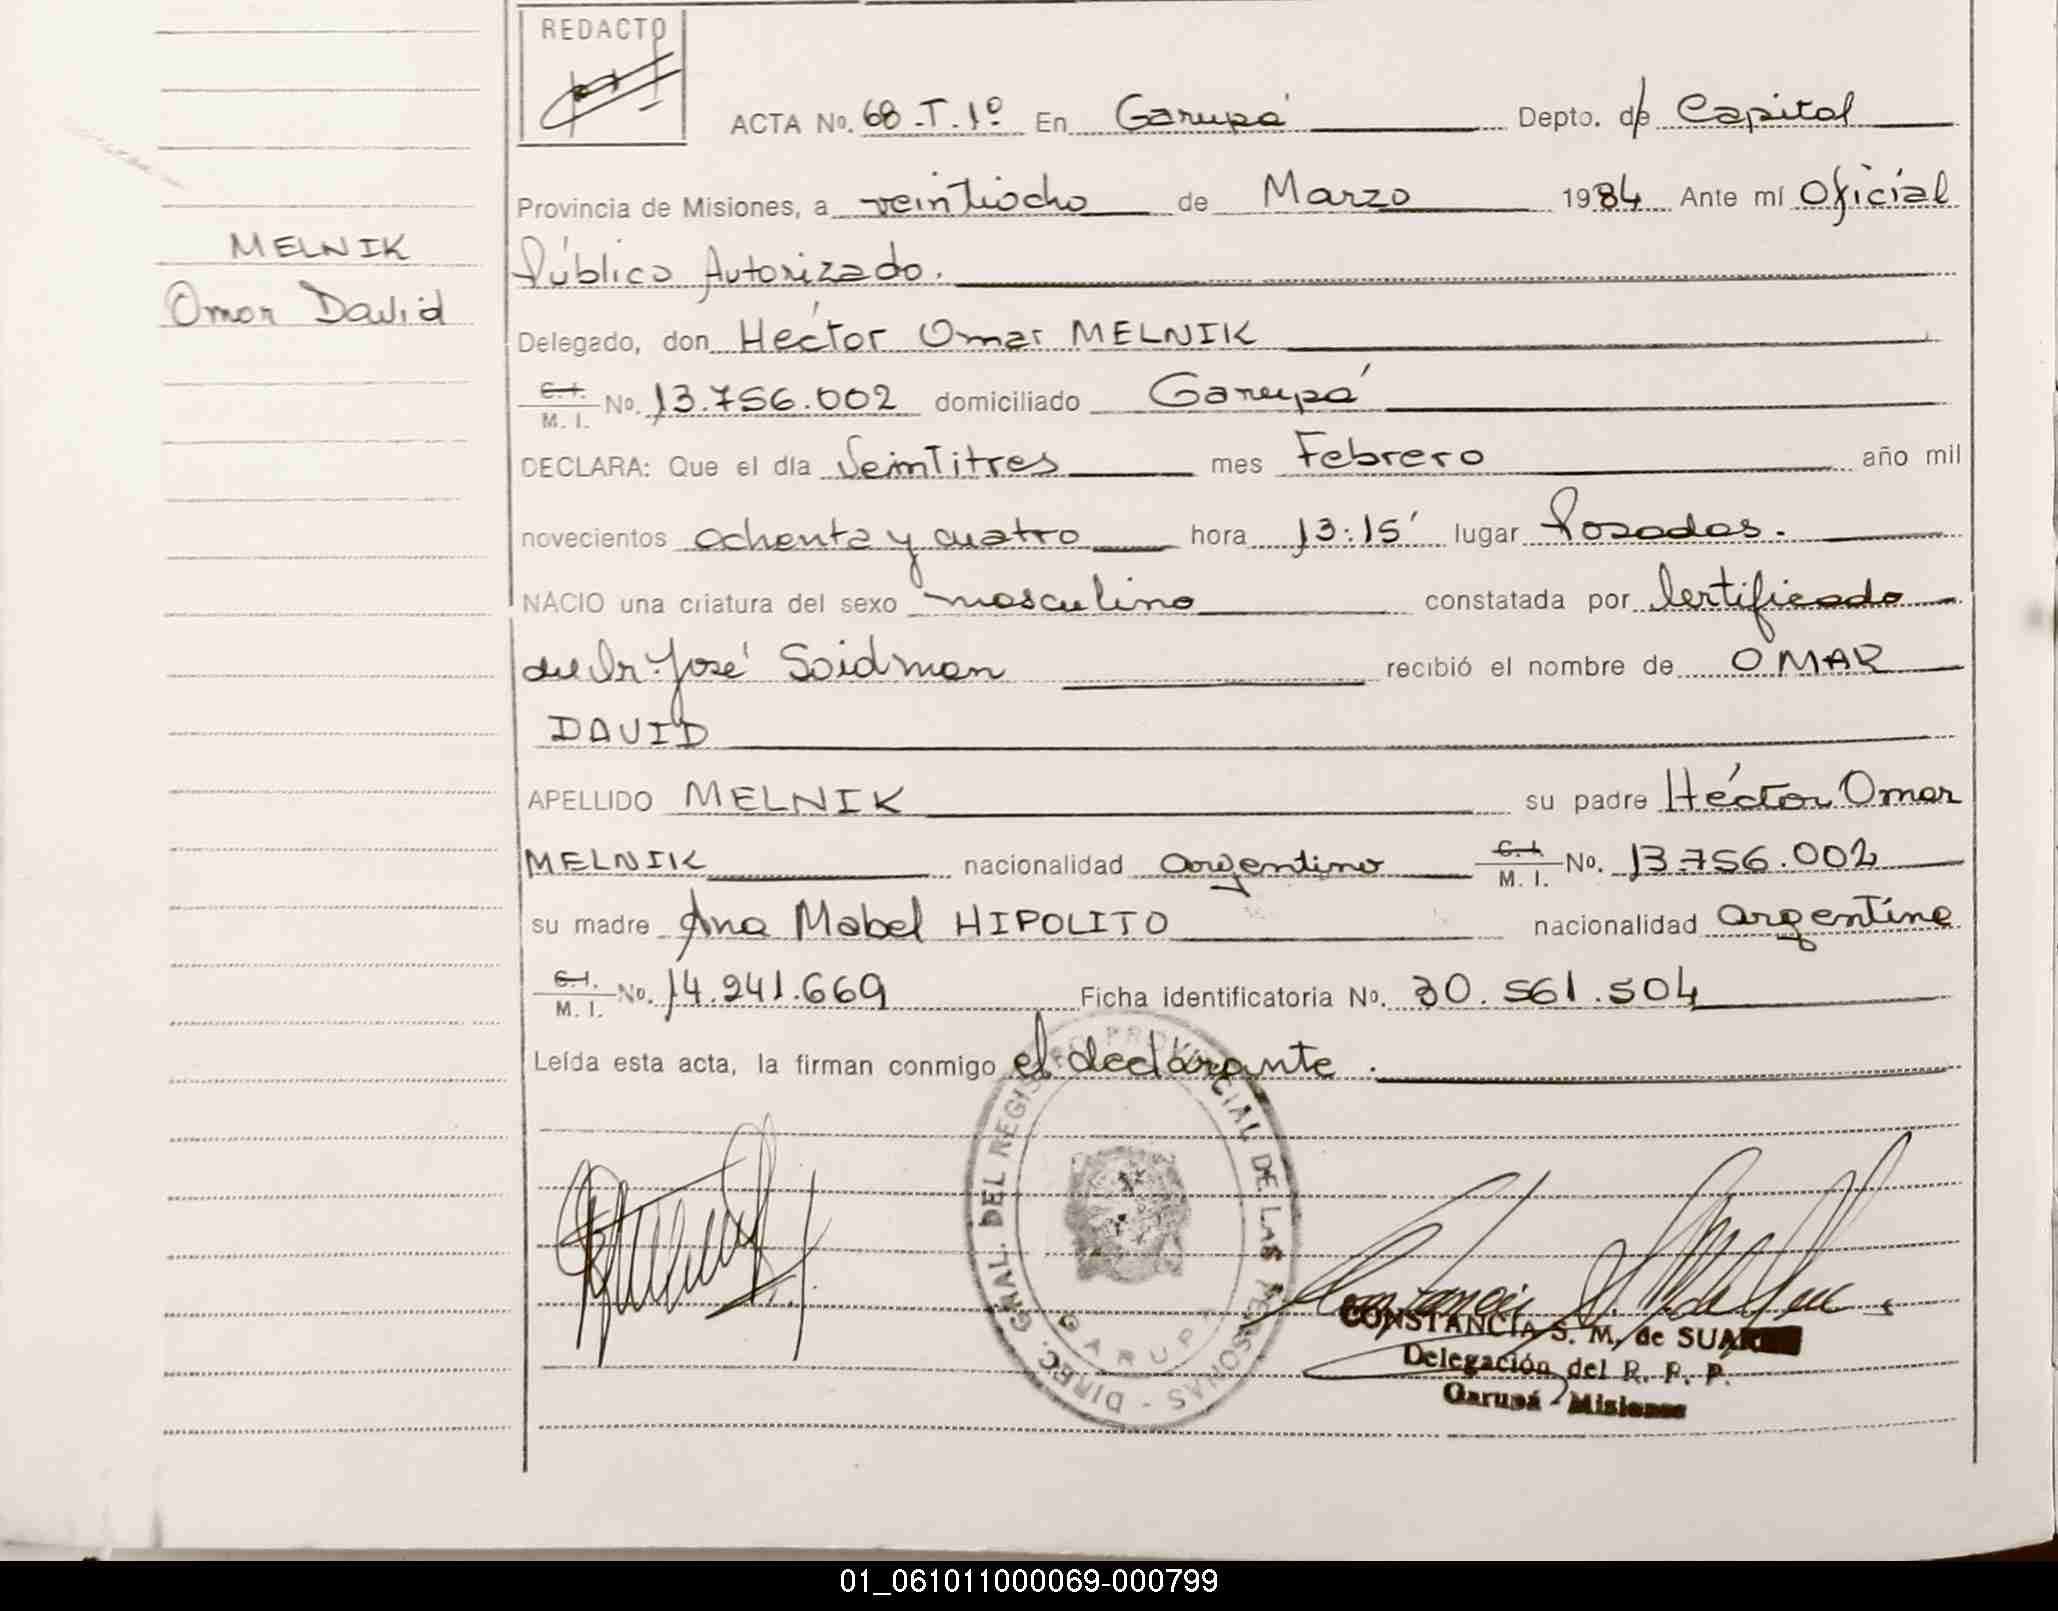 REDACTO
ACTA No. 68.T.1º En Garupá Depto. de Capital
Provincia de Misiones, a veintiocho de Marzo 1984 Ante mí Oficial
Público Autorizado.
MELNIK
Omar David
Delegado, don Héctor Omar MELNIK
C.I.
M. I. No. 13.756.002 domiciliado Garupá
DECLARA: Que el día Veintitres mes Febrero año mil
novecientos ochenta y cuatro hora 13:15' lugar Posadas.
NACIO una criatura del sexo masculino constatada por Certificado
del Dr. José Soidman recibió el nombre de OMAR
DAVID
APELLIDO MELNIK su padre Héctor Omar
MELNIK nacionalidad argentino C.I. M. I. No. 13.756.002
su madre Ana Mabel HIPOLITO nacionalidad argentina
C.I.
M. I. No. 14.241.669 Ficha identificatoria No. 30.561.504
Leída esta acta, la firman conmigo el declarante.
DIREC. GRAL. DEL REGISTRO PROVINCIAL DE LAS PERSONAS -
GARUPA
CONSTANCIA S. M. de SUAREZ
Delegación del R. P. P.
Garupá - Misiones
01_061011000069-000799